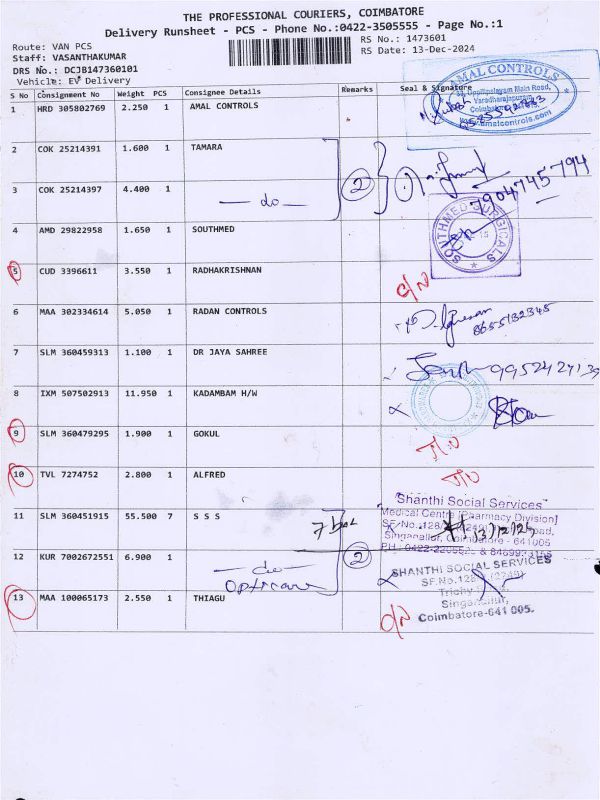 THE PROFESSIONAL COURIERS, COIMBATORE
Delivery Runsheet - PCS - Phone No.:0422-3505555 - Page No.:1
Route: VAN PCS
RS No.: 1473601
Staff: VASANTHAKUMAR
RS Date: 13-Dec-2024
DRS No.: DCJB147360101
Vehicle: EV Delivery
S No Consignment No Weight PCS Consignee Details Remarks Seal & Signature
1 HRD 305802769 2.250 1 AMAL CONTROLS
AMAL CONTROLS
Uppilipalayam Main Road,
Varadharajapuram,
www.amalcontrols.com
2 COK 25214391 1.600 1 TAMARA
2 1
7904745794
3 COK 25214397 4.400 1
— do —
4 AMD 29822958 1.650 1 SOUTHMED
SOUTHMED SURGICALS
5 CUD 3396611 3.550 1 RADHAKRISHNAN
6 MAA 302334614 5.050 1 RADAN CONTROLS
7 SLM 360459313 1.100 1 DR JAYA SAHREE
8 IXM 507502913 11.950 1 KADAMBAM H/W
9 SLM 360479295 1.900 1 GOKUL
10 TVL 7274752 2.800 1 ALFRED
11 SLM 360451915 55.500 7 S S S
Shanthi Social Services
Medical Centre [Pharmacy Division]
Singanallur, Coimbatore - 641005
12 KUR 7002672551 6.900 1
— do —
2
SHANTHI SOCIAL SERVICES
Singanallur,
Coimbatore-641 005.
13 MAA 100065173 2.550 1 THIAGU